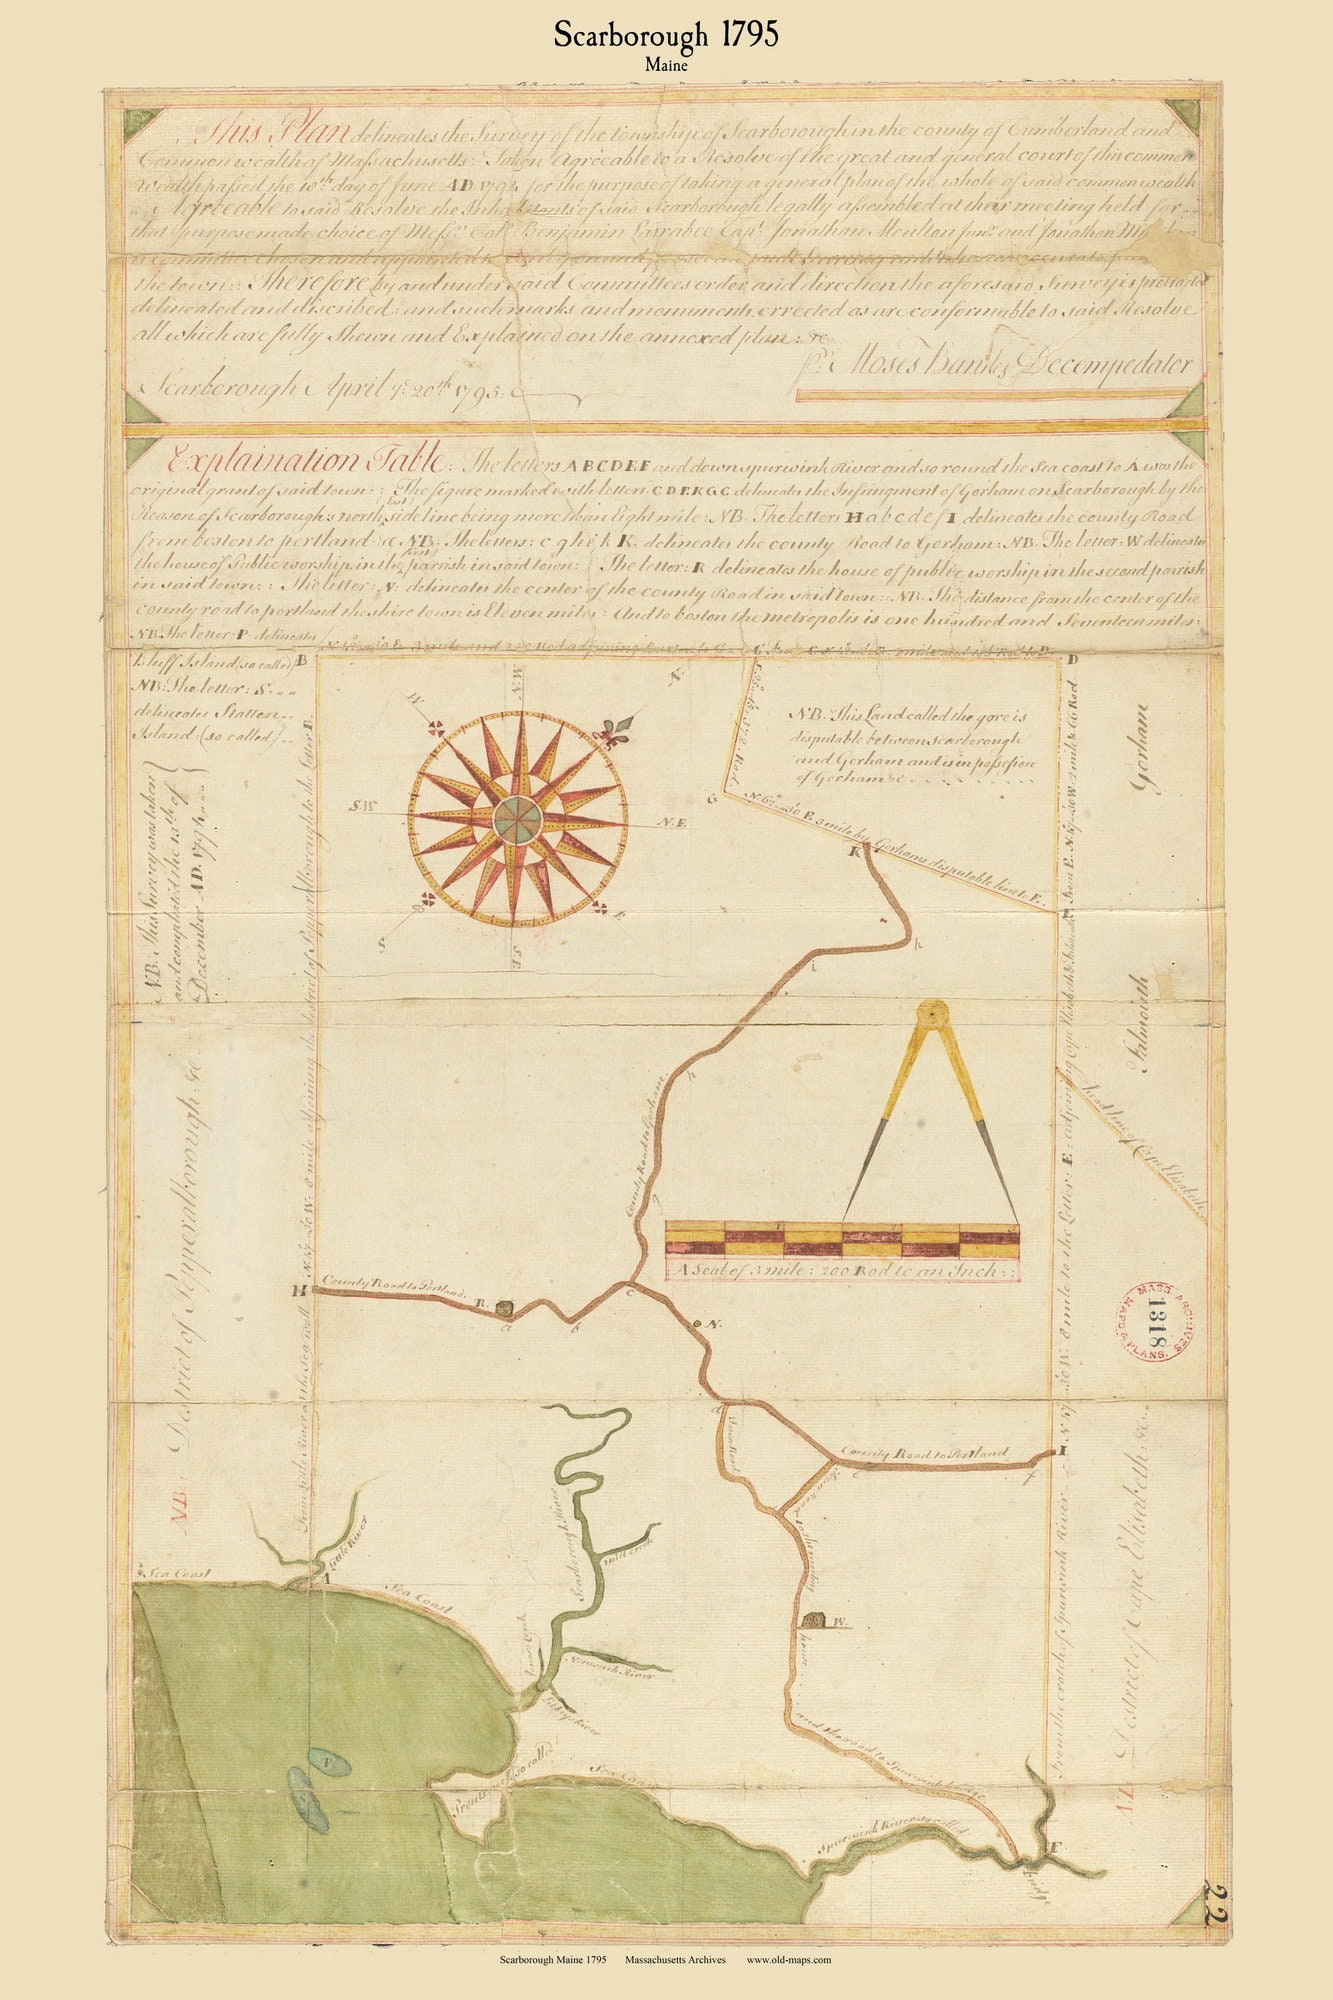 Scarborough 1795
Maine
This Plan delineates the Survey of the township of Scarborough in the county of Cumberland and
Common wealth of Massachusetts: Taken Agreeable to a Resolve of the great and general court of this common
wealth passed the 18th day of June AD. 1794 for the purpose of taking a general plan of the whole of said common wealth
Agreeable to said Resolve the Inhabitants of said Scarborough legally assembled at their meeting held for
that purpose made choice of Messrs Colo. Benjamin Larrabee Capt. Jonathan Moulton junr. and Jonathan
a Committee Chosen and appointed
the town:: Therefore by and under said Committees order and direction the aforesaid Survey is protracted
delineated and discribed: and such marks and monuments errected as are conformable to said Resolve
all which are fully Shewn and Explained on the annexed plan: &c
pr. Moses Banks Decempedator
Scarborough April ye. 20th 1795:
Explaination Table: The letters A B C D E F and down spurwink River and so round the Sea coast to A was the
original grant of said town:: The figure marked with letters C D E K G C delineates the Infringment of Gorham on Scarborough by the
Reason of Scarborough's north east side line being more than Eight mile: NB. The letters H a b c d e f I delineates the county Road
from boston to portland &c NB. The letters: c g h i k K. delineates the county Road to Gorham: NB. The letter: W delineates
the house of Public worship in the first parrish in said town: The letter: R delineates the house of public worship in the second parrish
in said town:: The letter: N: delineates the center of the county Road in said town:: NB. The distance from the center of the
county road to portland the shire town is Eleven mile: And to boston the metropolis is one hundred and Seventeen miles:
NB. The letter: P. delineates
Bluff Island (so called)
NB: The letter: S.
delineates Statten
Island (so called)
B
C
D
N.W
W
N
S.W
N.E.
S
S.E
E
NB. This Land called the gore is
disputable between Scarborough
and Gorham and is in possession
of Gorham &c
S. 25° 15', 372. Rod.
G
N. 62° 30' E. 3 mile by Gorhams disputable line to E.
K
k
i
h
g
Gorham
Falmouth
head line of Cape Elisabeth
NB. This Survey was taken
and compleated the 13th of
December AD. 1794
District of Pepperalborough: &c
NB:
From Little River at the Sea wall N. 47° 30' W: 8 mile adjoining the district of Pepperalborough to the Letter B.
County Road to Gorham
A Scal of 3 mile: 200 Rod to an Inch::
H
County Road to Portland.
R.
a
b
c
N.
d
Town Road
County Road to Portland
e
f
I
MASS. ARCHIVES
MAPS & PLANS.
1318
From the crotch of Spurwink River N. 47° 30' W. 8 mile to the Letter: E: adjoining Cape Elisabeth & Falmouth
From E. N. 47° 30' W: 2 mile & 66 Rod
Sea Coast
Little River
A
Sea Coast
Scarborough River
Mill Creek
Nonesuch River
Libbys River
W.
house
and the road to Spurwink bridge
P
S
Prouts neck (so called)
Sea Coast
Spurwink River so called
F
Bridge
District of Cape Elisabeth: &c
NB:
22
Scarborough Maine 1795 Massachusetts Archives www.old-maps.com